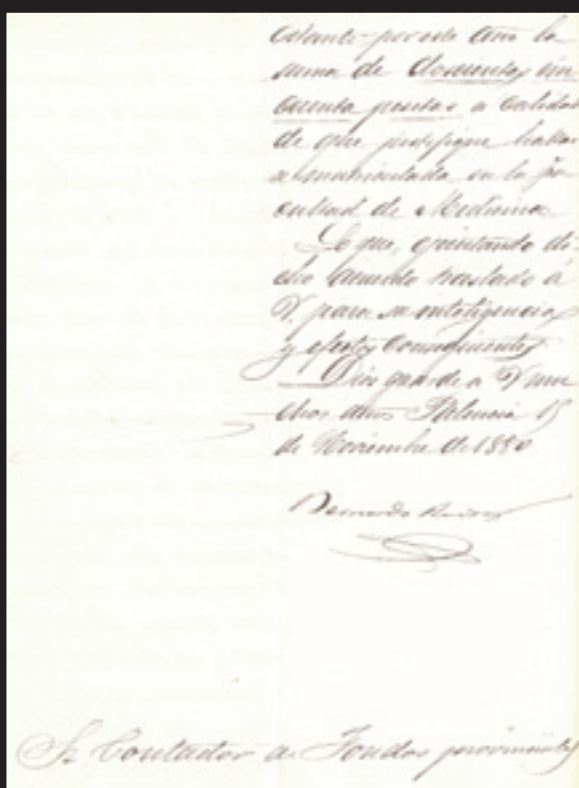 delante por este Año la
suma de doscientas cin
cuenta pesetas a calidad
de que justifique hallar
se matriculada en la fa
cultad de Medicina.
Lo que, ejecutando di
cho acuerdo traslado á
V. para su inteligencia
y efectos consiguientes
Dios guarde a V. mu
chos años Palencia 15
de Noviembre de 1880
Sr Contador de Fondos provinciales